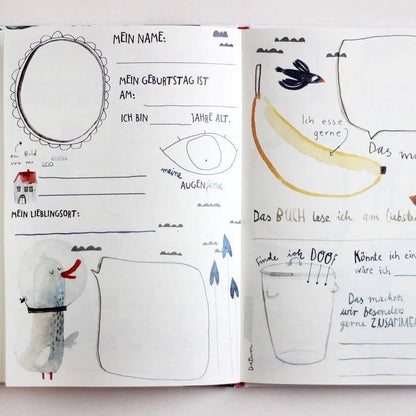 MEIN NAME:
MEIN GEBURTSTAG IST
AM:
ICH BIN JAHRE ALT.
ein Bild
von mir
meine
AUGENfarbe
MEIN LIEBLINGSORT:
Ich esse
gerne
Das ma
Das BUCH lese ich am liebste
finde ich DOOF
Könnte ich ein
wäre ich
Das machen
wir besonders
gerne ZUSAMMEN
Datum: